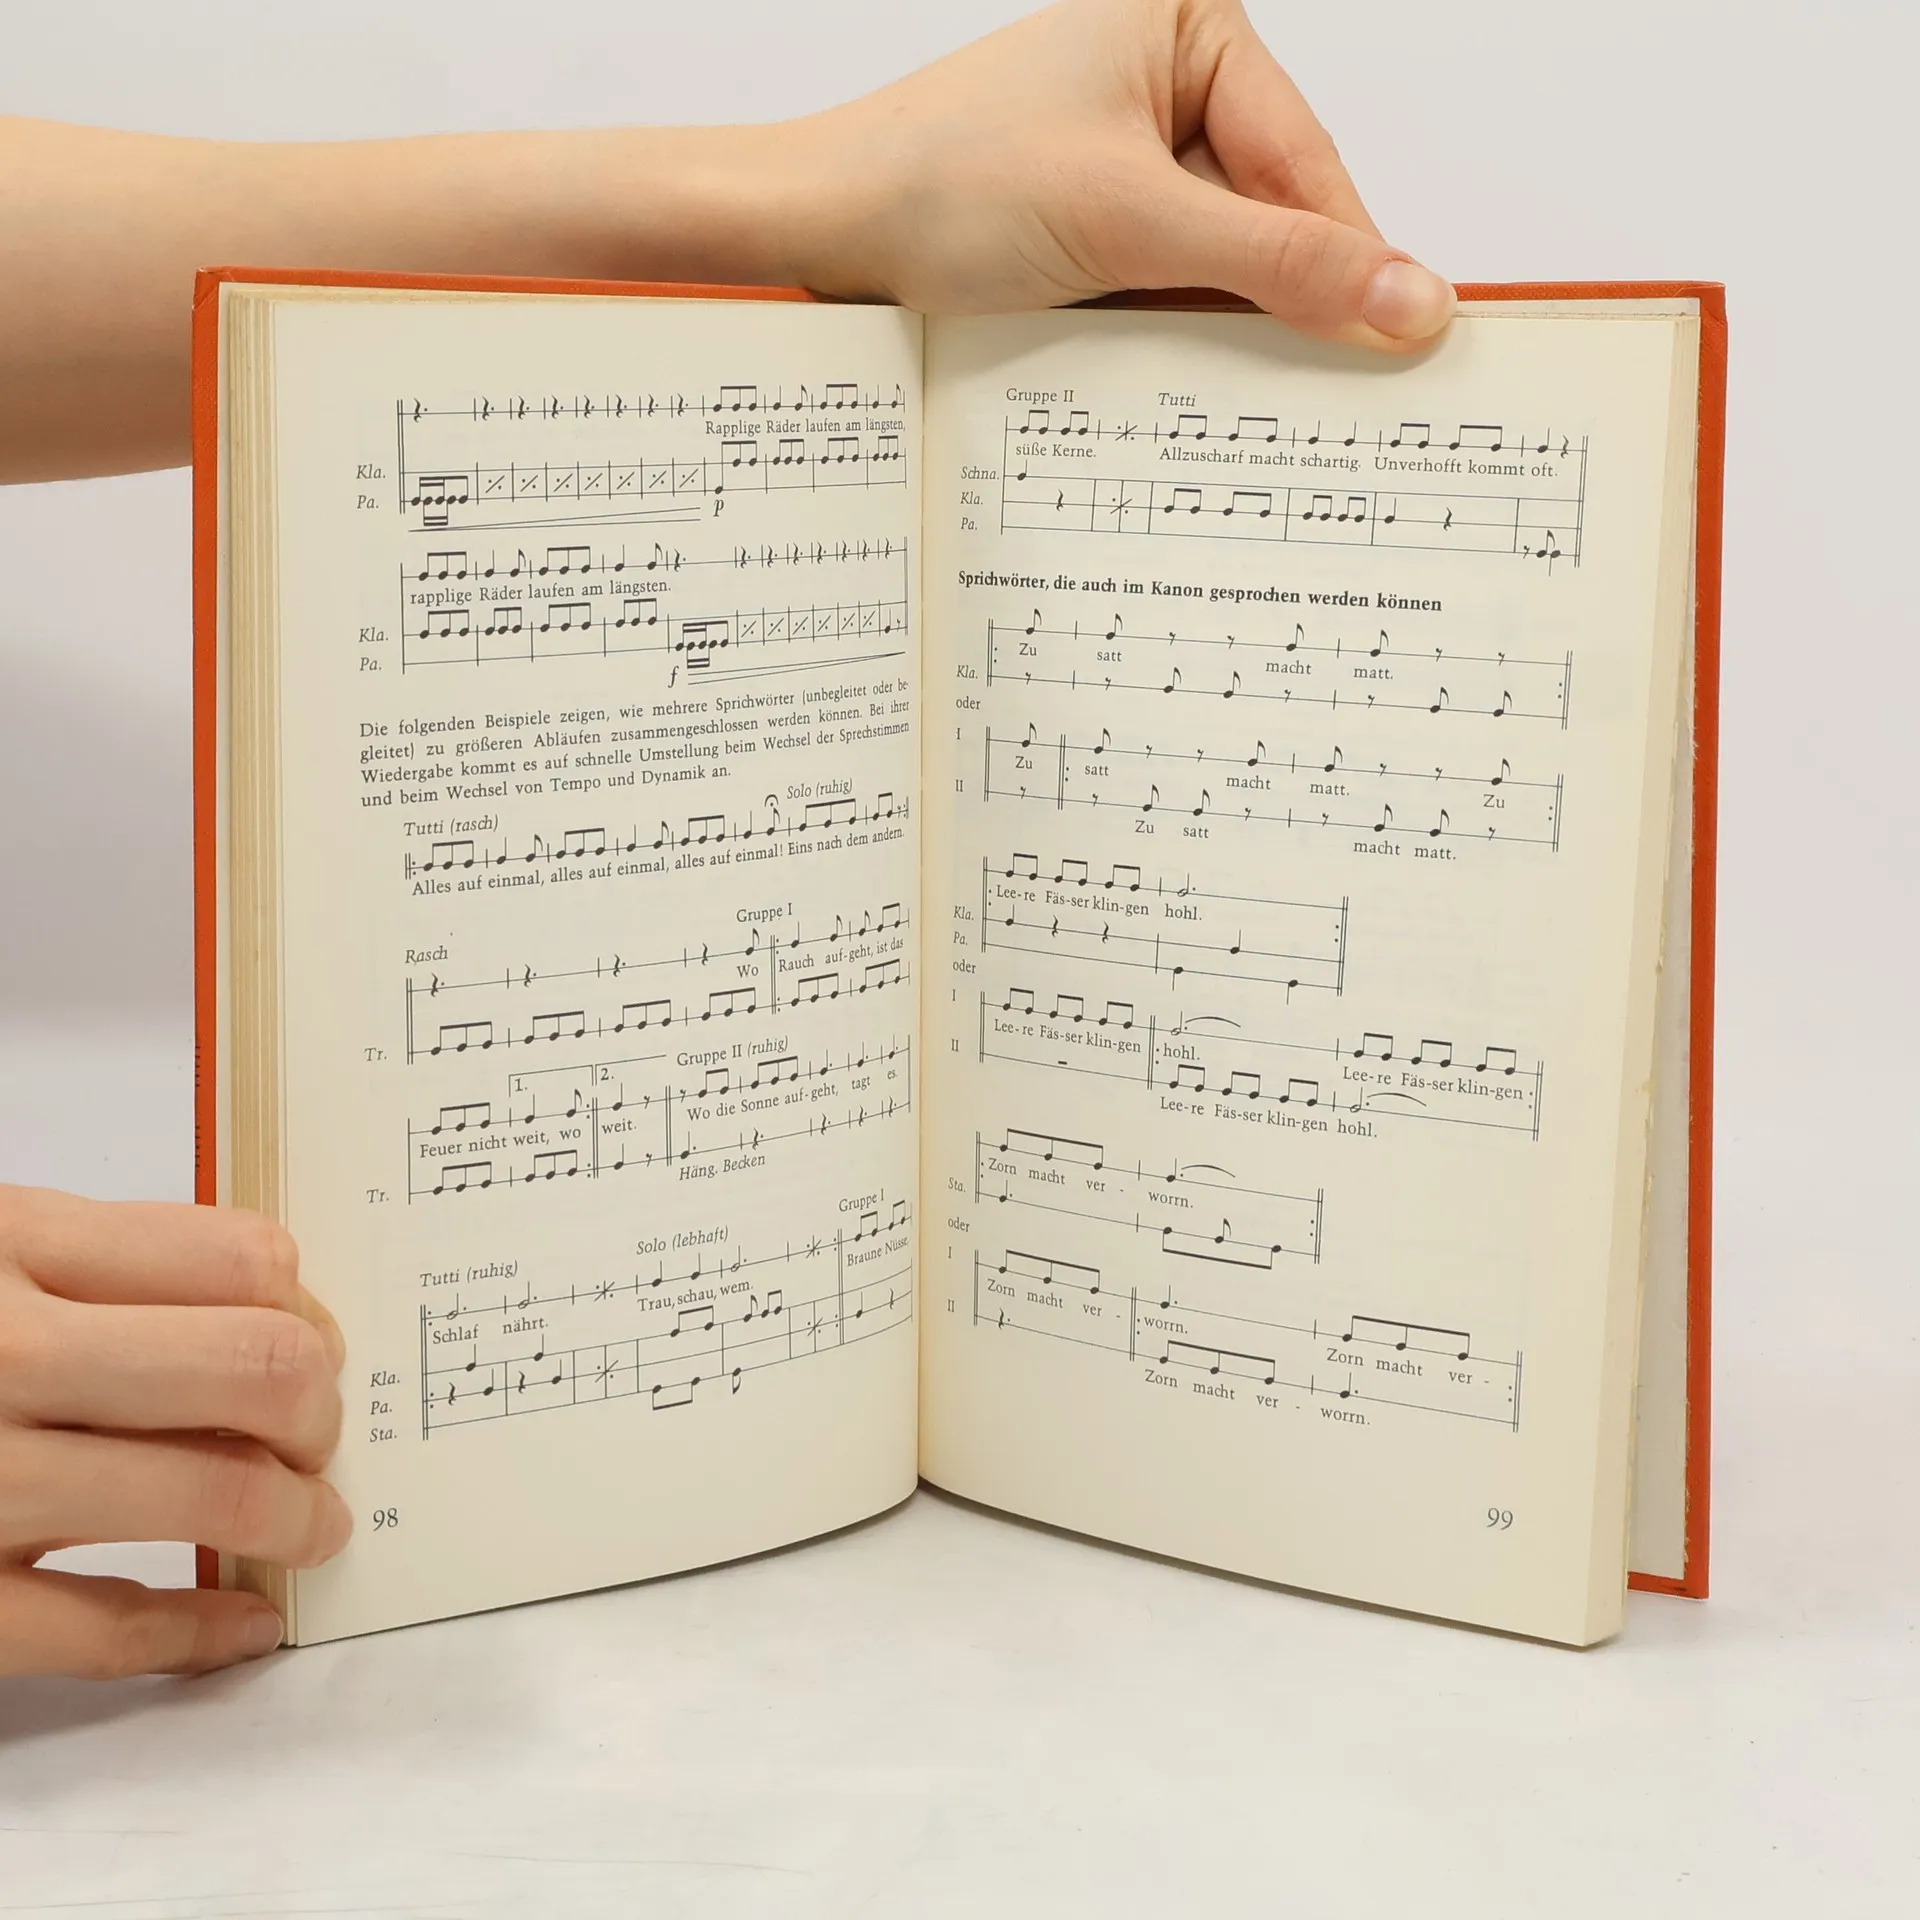 Rapplige Räder laufen am längsten,
Kla.
Pa.
p
rapplige Räder laufen am längsten.
Kla.
Pa.
f
Die folgenden Beispiele zeigen, wie mehrere Sprichwörter (unbegleitet oder be-
gleitet) zu größeren Abläufen zusammengeschlossen werden können. Bei ihrer
Wiedergabe kommt es auf schnelle Umstellung beim Wechsel der Sprechstimmen
und beim Wechsel von Tempo und Dynamik an.
Tutti (rasch) Solo (ruhig)
Alles auf einmal, alles auf einmal, alles auf einmal! Eins nach dem andern.
Rasch Gruppe I
Wo Rauch auf-geht, ist das
Tr.
1. 2. Gruppe II (ruhig)
Feuer nicht weit, wo weit. Wo die Sonne auf-geht, tagt es.
Tr. Häng. Becken
Tutti (ruhig) Solo (lebhaft) Gruppe I
Schlaf nährt. Trau, schau, wem. Braune Nüsse,
Kla.
Pa.
Sta.
98
Gruppe II Tutti
süße Kerne. Allzuscharf macht schartig. Unverhofft kommt oft.
Schna.
Kla.
Pa.
Sprichwörter, die auch im Kanon gesprochen werden können
Zu satt macht matt.
Kla.
oder
I
Zu satt macht matt. Zu
II
Zu satt macht matt.
Lee-re Fäs-ser klin-gen hohl.
Kla.
Pa.
oder
I
Lee-re Fäs-ser klin-gen hohl. Lee-re Fäs-ser klin-gen
II
Lee-re Fäs-ser klin-gen hohl.
Zorn macht ver - worrn.
Sta.
oder
I
Zorn macht ver - worrn. Zorn macht ver -
II
Zorn macht ver - worrn.
99